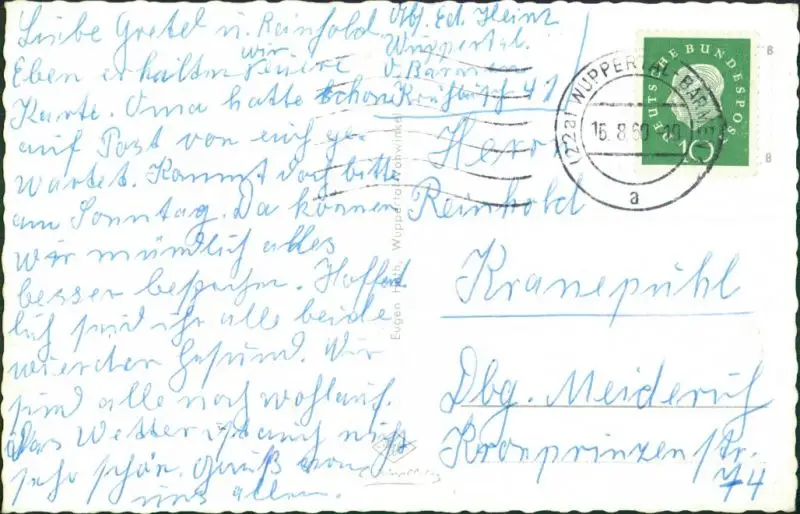 Liebe Gretel u. Reinhold
Eben erhalten wir Feuere
Karte. Oma hatte schon
auf Post von euch ge-
wartet. Kommt doch bitte
am Sonntag. Da können
wir mündlich alles
besser besprechn. Hoffent
lich seid ihr alle beide
wieder Gesund. Wir
sind alle noch wohlauf.
Das Wetter ist auch nicht
sehr schön. Gruß von
uns allen.
Abs. Ed. Heinz
Wuppertal.
v. Barmen
41
Herr
Reinhold
Kranepuhl
Dbg. Meiderich
Kronprinzenstr.
74
Eugen Wuppertal-Vohwinkel
DEUTSCHE BUNDESPOST
10
(22a) WUPPERTAL-BARMEN
16.8.60
a